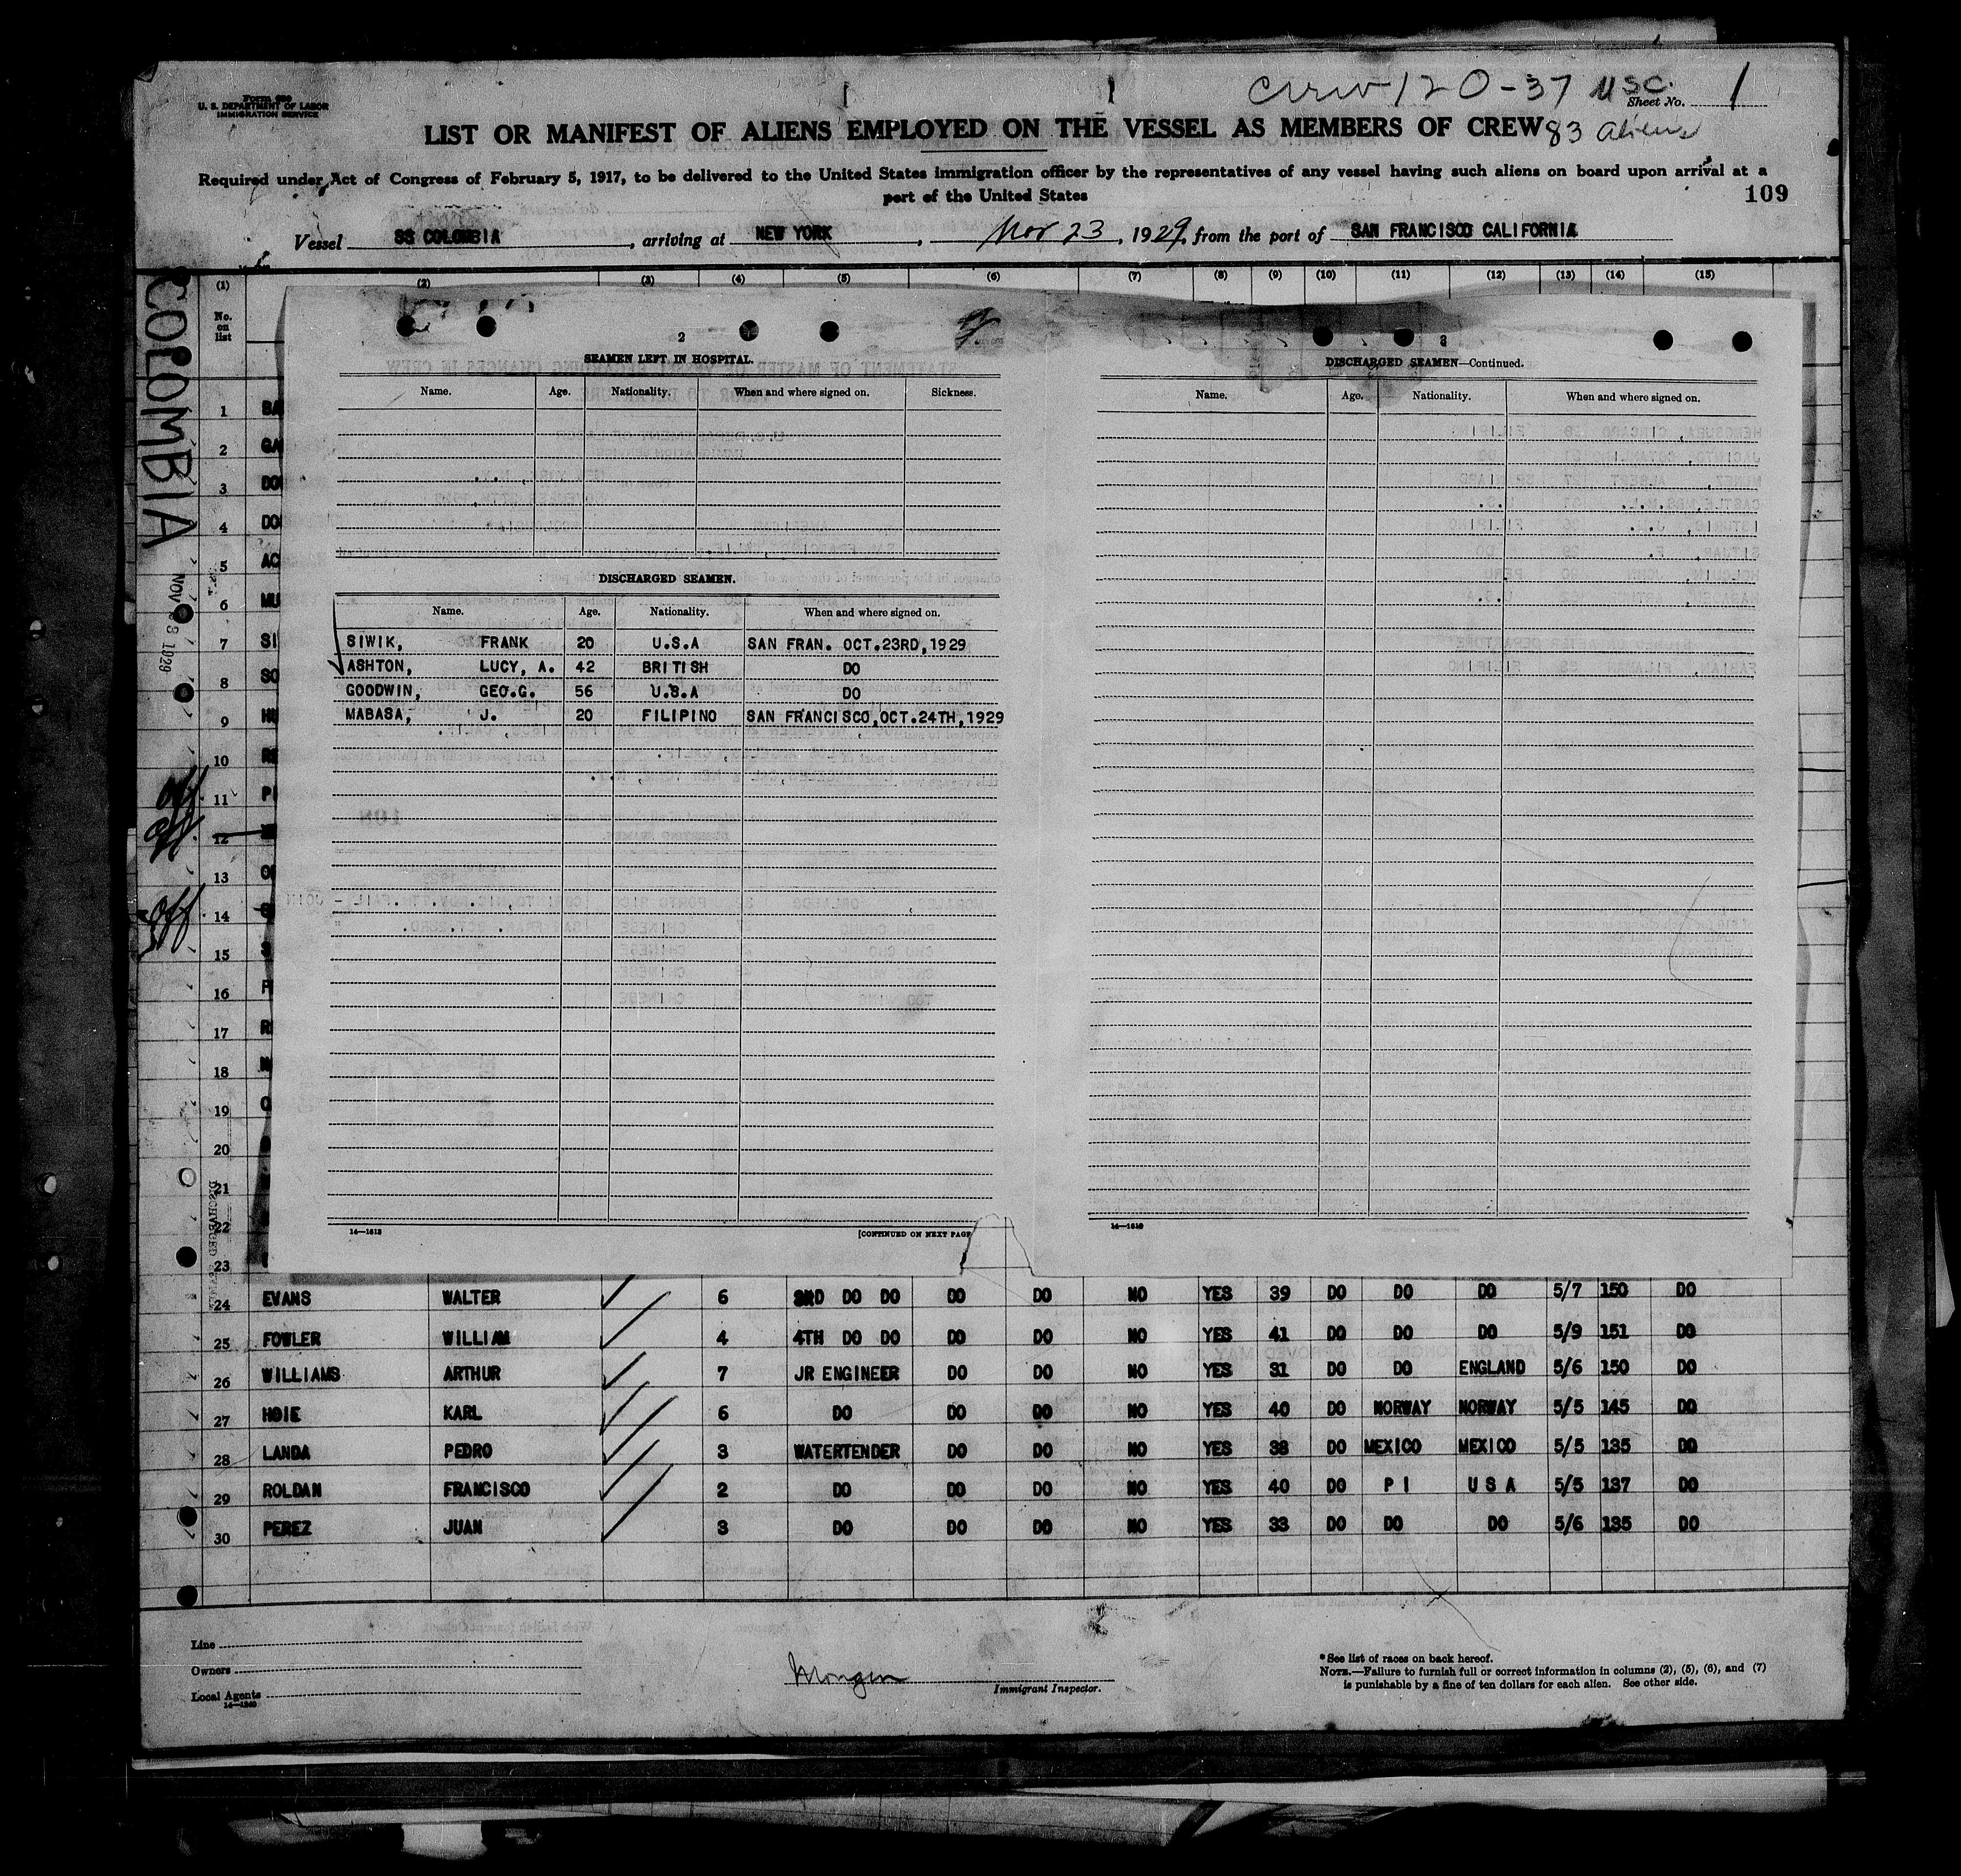 Form 680
U. S. DEPARTMENT OF LABOR
IMMIGRATION SERVICE
Crew 120-37 USC.
Sheet No. 1
LIST OR MANIFEST OF ALIENS EMPLOYED ON THE VESSEL AS MEMBERS OF CREW 83 aliens
Required under Act of Congress of February 5, 1917, to be delivered to the United States immigration officer by the representatives of any vessel having such aliens on board upon arrival at a
port of the United States
109
Vessel SS COLOMBIA, arriving at NEW YORK, Nov 23, 1929, from the port of SAN FRANCISCO CALIFORNIA
(1) (2) (3) (4) (5) (6) (7) (8) (9) (10) (11) (12) (13) (14) (15)
COLOMBIA
No. on list
2
SEAMEN LEFT IN HOSPITAL.
Name. Age. Nationality. When and where signed on. Sickness.
DISCHARGED SEAMEN.
Name. Age. Nationality. When and where signed on.
SIWIK, FRANK 20 U.S.A SAN FRAN. OCT.23RD,1929
ASHTON, LUCY, A. 42 BRITISH DO
GOODWIN, GEO.G. 56 U.S.A DO
MABASA, J. 20 FILIPINO SAN FRANCISCO,OCT.24TH,1929
14—1613
[CONTINUED ON NEXT PAGE
3
DISCHARGED SEAMEN—Continued.
Name. Age. Nationality. When and where signed on.
1
2
3
4
5
6
7
8
9
10
11
12
13
14
15
16
17
18
19
20
21
22
23
24 EVANS WALTER 6 3RD DO DO DO DO NO YES 39 DO DO DO 5/7 150 DO
25 FOWLER WILLIAM 4 4TH DO DO DO DO NO YES 41 DO DO DO 5/9 151 DO
26 WILLIAMS ARTHUR 7 JR ENGINEER DO DO NO YES 31 DO DO ENGLAND 5/6 150 DO
27 HOIE KARL 6 DO DO DO NO YES 40 DO NORWAY NORWAY 5/5 145 DO
28 LANDA PEDRO 3 WATERTENDER DO DO NO YES 38 DO MEXICO MEXICO 5/5 135 DO
29 ROLDAN FRANCISCO 2 DO DO DO NO YES 40 DO P I U S A 5/5 137 DO
30 PEREZ JUAN 3 DO DO DO NO YES 33 DO DO DO 5/6 135 DO
Line
Owners
Local Agents
14—1240
Immigrant Inspector.
*See list of races on back hereof.
NOTE.—Failure to furnish full or correct information in columns (2), (5), (6), and (7)
is punishable by a fine of ten dollars for each alien. See other side.